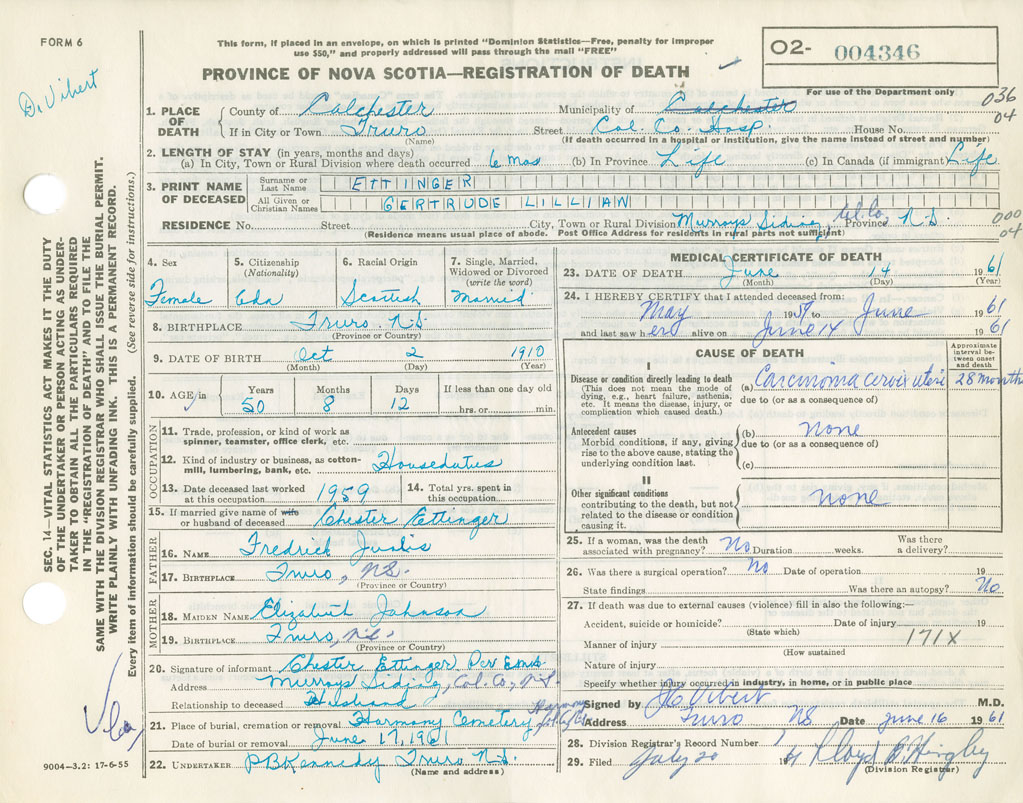 FORM 6
Dr. Vibert
This form, if placed in an envelope, on which is printed "Dominion Statistics—Free, penalty for improper
use $50," and properly addressed will pass through the mail "FREE"
PROVINCE OF NOVA SCOTIA—REGISTRATION OF DEATH
02- 004346
For use of the Department only
036
04
1. PLACE OF DEATH
County of Colchester Municipality of Colchester
If in City or Town Truro Street Col. Co. Hosp. House No.
(Name) (If death occurred in a hospital or institution, give the name instead of street and number)
2. LENGTH OF STAY (in years, months and days)
(a) In City, Town or Rural Division where death occurred 6 mos (b) In Province Life (c) In Canada (if immigrant) Life
3. PRINT NAME OF DECEASED
Surname or Last Name ETTINGER
All Given or Christian Names GERTRUDE LILLIAN
RESIDENCE No. Street City, Town or Rural Division Murrays Siding, Col. Co. Province N.S.
(Residence means usual place of abode. Post Office Address for residents in rural parts not sufficient)
000
04
4. Sex
Female
5. Citizenship
(Nationality)
Cdn
6. Racial Origin
Scottish
7. Single, Married,
Widowed or Divorced
(write the word)
Married
8. BIRTHPLACE Truro N.S.
(Province or Country)
9. DATE OF BIRTH Oct 2 1910
(Month) (Day) (Year)
10. AGE in
Years Months Days If less than one day old
50 8 12 hrs. or min.
OCCUPATION
11. Trade, profession, or kind of work as
spinner, teamster, office clerk, etc.
12. Kind of industry or business, as cotton-
mill, lumbering, bank, etc. Houseduties
13. Date deceased last worked
at this occupation 1959
14. Total yrs. spent in
this occupation
15. If married give name of wife
or husband of deceased Chester Ettinger
FATHER
16. NAME Fredrick
17. BIRTHPLACE Truro, N.S.
(Province or Country)
MOTHER
18. MAIDEN NAME Elizabeth Johnson
19. BIRTHPLACE Truro, N.S.
(Province or Country)
20. Signature of informant Chester Ettinger Per
Address Murrays Siding, Col. Co., N.S.
Relationship to deceased Husband
21. Place of burial, cremation or removal Harmony Cemetery Harmony Col. Co.
Date of burial or removal June 17, 1961
22. UNDERTAKER P B Kennedy Truro N.S.
(Name and address)
9004—3.2: 17-6-55
MEDICAL CERTIFICATE OF DEATH
23. DATE OF DEATH June 14 1961
(Month) (Day) (Year)
24. I HEREBY CERTIFY that I attended deceased from:
May 1959 to June 1961
and last saw her alive on June 14 1961
CAUSE OF DEATH
Approximate
interval be-
tween onset
and death
I
Disease or condition directly leading to death
(This does not mean the mode of
dying, e.g., heart failure, asthenia,
etc. It means the disease, injury, or
complication which caused death.)
(a) Carcinoma cervix uteri 28 months
due to (or as a consequence of)
Antecedent causes
Morbid conditions, if any, giving
rise to the above cause, stating the
underlying condition last.
(b) None
due to (or as a consequence of)
(c)
II
Other significant conditions
contributing to the death, but not
related to the disease or condition
causing it.
none
25. If a woman, was the death
associated with pregnancy? No Duration weeks. Was there
a delivery?
26. Was there a surgical operation? No Date of operation 19
State findings Was there an autopsy? No
27. If death was due to external causes (violence) fill in also the following:—
Accident, suicide or homicide? Date of injury 19
(State which)
Manner of injury 171X
(How sustained
Nature of injury
Specify whether injury occurred in industry, in home, or in public place
Signed by Vibert M.D.
Address Truro NS Date June 16 1961
28. Division Registrar's Record Number
29. Filed July 20 19
(Division Registrar)
SEC. 14—VITAL STATISTICS ACT MAKES IT THE DUTY
OF THE UNDERTAKER OR PERSON ACTING AS UNDER-
TAKER TO OBTAIN ALL THE PARTICULARS REQUIRED
IN THE "REGISTRATION OF DEATH" AND TO FILE THE
SAME WITH THE DIVISION REGISTRAR WHO SHALL ISSUE THE BURIAL PERMIT.
WRITE PLAINLY WITH UNFADING INK. THIS IS A PERMANENT RECORD.
Every item of information should be carefully supplied. (See reverse side for instructions.)